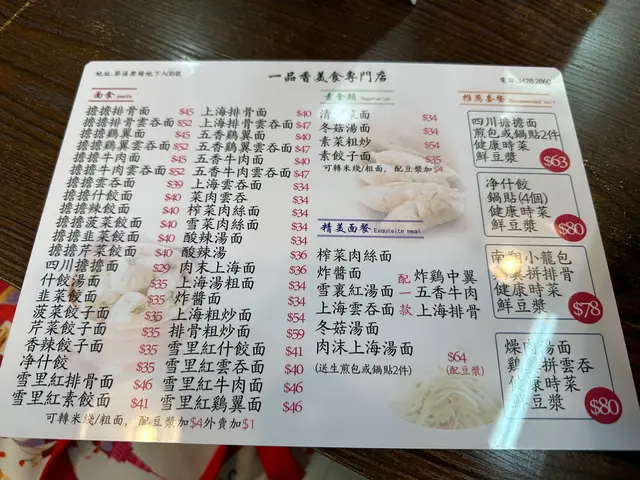 一品香美食專門店
面食
擔擔排骨面 $45
擔擔排骨雲吞面 $52
擔擔鷄翼面 $45
擔擔鷄翼雲吞面 $52
擔擔牛肉面 $45
擔擔牛肉雲吞面 $52
擔擔雲吞面 $39
擔擔什餃面 $40
擔擔辣餃面 $40
擔擔菠菜餃面 $40
擔擔韭菜餃面 $40
擔擔芹菜餃面 $40
四川擔擔面 $29
什餃湯面 $35
韭菜餃面 $35
菠菜餃子面 $35
芹菜餃子面 $35
香辣餃子面 $35
净什餃 $35
雪里紅排骨面 $46
雪里紅素餃面 $41
上海排骨面 $40
上海排骨雲吞面 $47
五香鷄翼面 $40
五香鷄翼雲吞面 $47
五香牛肉面 $40
五香牛肉雲吞面 $47
上海雲吞面 $34
菜肉雲吞 $34
榨菜肉絲面 $34
雪菜肉絲面 $34
酸辣湯面 $34
酸辣湯 $36
肉末上海面 $36
上海湯粗面 $34
炸醬面 $36
上海粗炒面 $54
排骨粗炒面 $59
雪里紅什餃面 $41
雪里紅雲吞面 $40
雪里紅牛肉面 $46
雪里紅鷄翼面 $46
可轉米綫/粗面，配豆漿加$4外賣加$1
素食類
$34
冬菇湯面 $34
素菜粗炒 $54
素餃子面 $35
可轉米綫/粗面，配豆漿加$4
精美面餐 Exquisite meal
榨菜肉絲面
炸醬面
雪裏紅湯面
上海雲吞面
冬菇湯面
肉沫上海湯面
配一款
炸鷄中翼
五香牛肉
上海排骨
$64
(送生煎包或鍋貼2件)
(配豆漿)
推薦套餐
四川擔擔面
煎包或鍋貼2件
健康時菜
鮮豆漿
$63
净什餃
鍋貼(4個)
健康時菜
鮮豆漿
$80
南翔小籠包
拼排骨
健康時菜
鮮豆漿
$78
湯面
拼雲吞
時菜
豆漿
$80